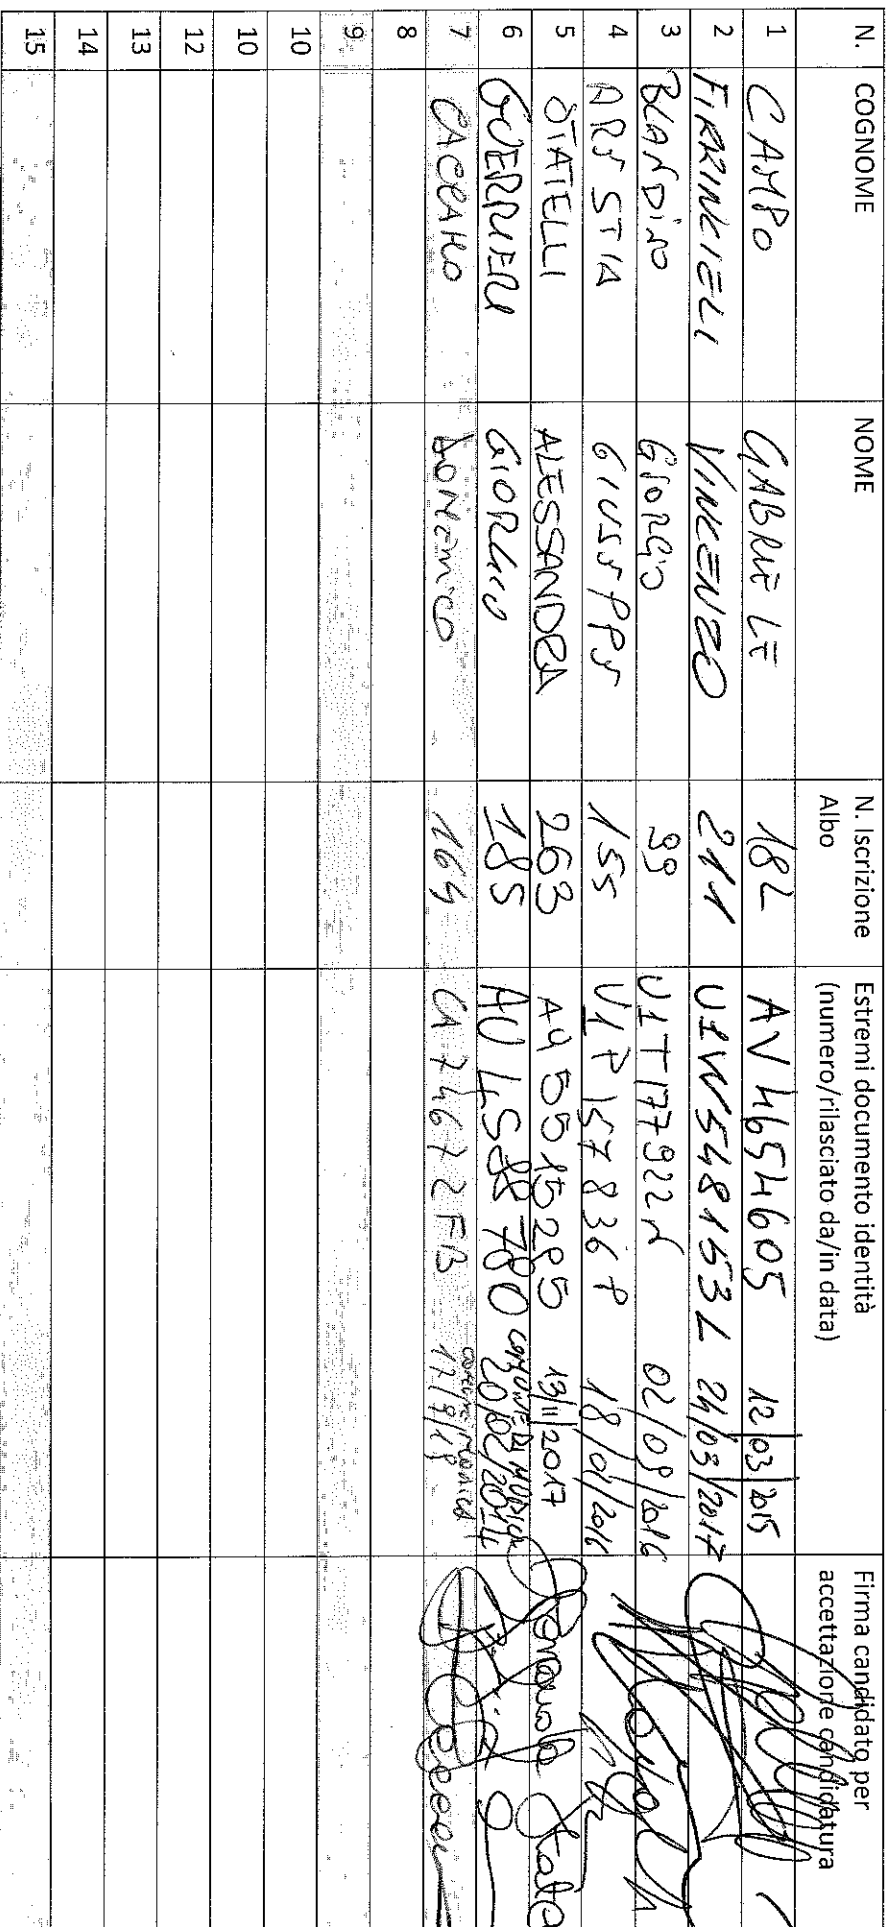 N. COGNOME NOME N. Iscrizione Albo Estremi documento identità (numero/rilasciato da/in data) Firma candidato per accettazione candidatura
1 CAMPO GABRIELE 182 AV4654605 12/03/2015
2 FIRRINCIELI VINCENZO 211 U1W548153L 24/03/2017
3 BLANDINO GIORGIO 99 U1T177922N 02/09/2016
4 ARESTIA GIUSEPPE 155 U1P157836P 18/01/2016
5 STATELLI ALESSANDRA 263 AY5515285 19/11/2017
6 GUERRIERI GIORGIO 185 AU 4588780 COMUNE DI MODICA 20/02/2014
7 CACCAMO DOMENICO 164 CA74672FB 17/9/18
8
9
10
10
12
13
14
15